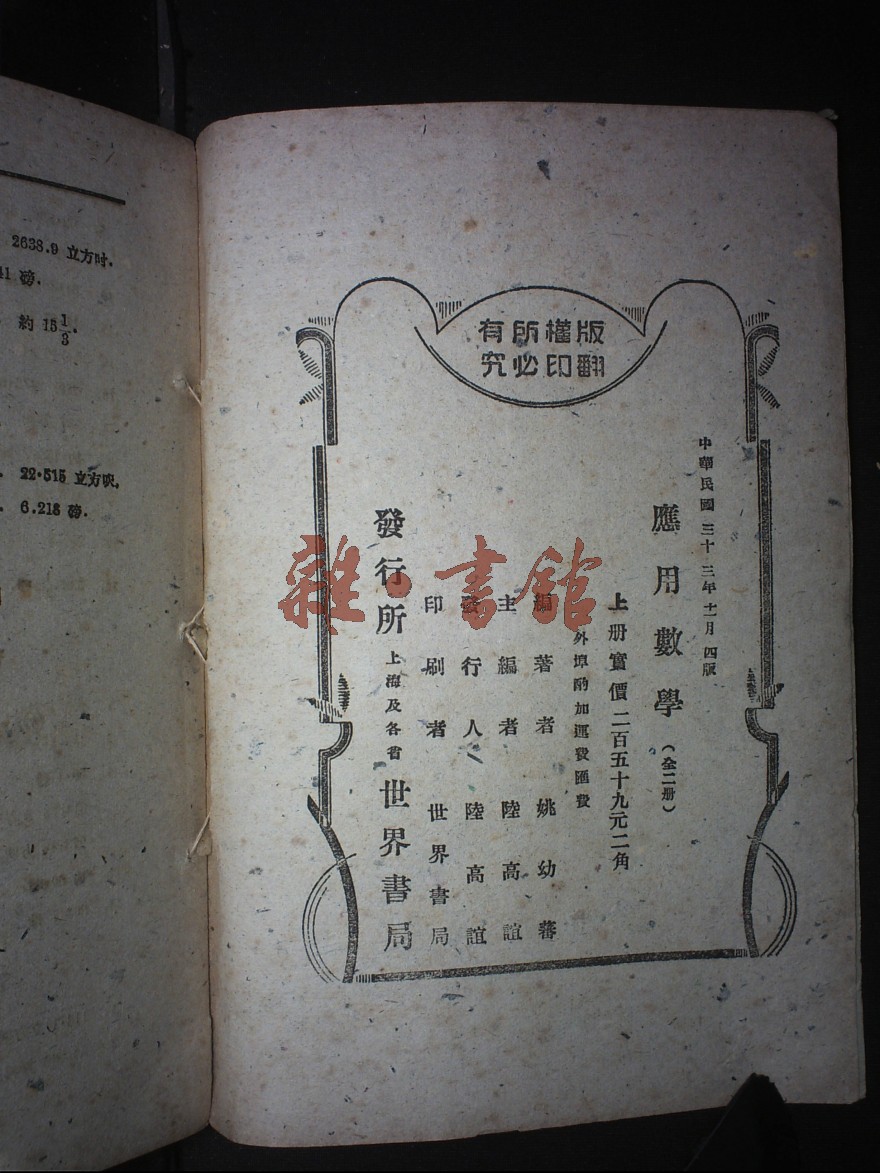 2638.9 立方吋.
41 磅.
約 15 1/3.
22.515 立方呎.
6.218 磅.
版權所有
翻印必究
中華民國三十三年十一月四版
應用數學(全二册)
上册實價二百五十九元二角
外埠酌加運費匯費
編著者 姚幼蕃
主編者 陸高誼
發行人 陸高誼
印刷者 世界書局
發行所 上海及各省 世界書局
雜·書館